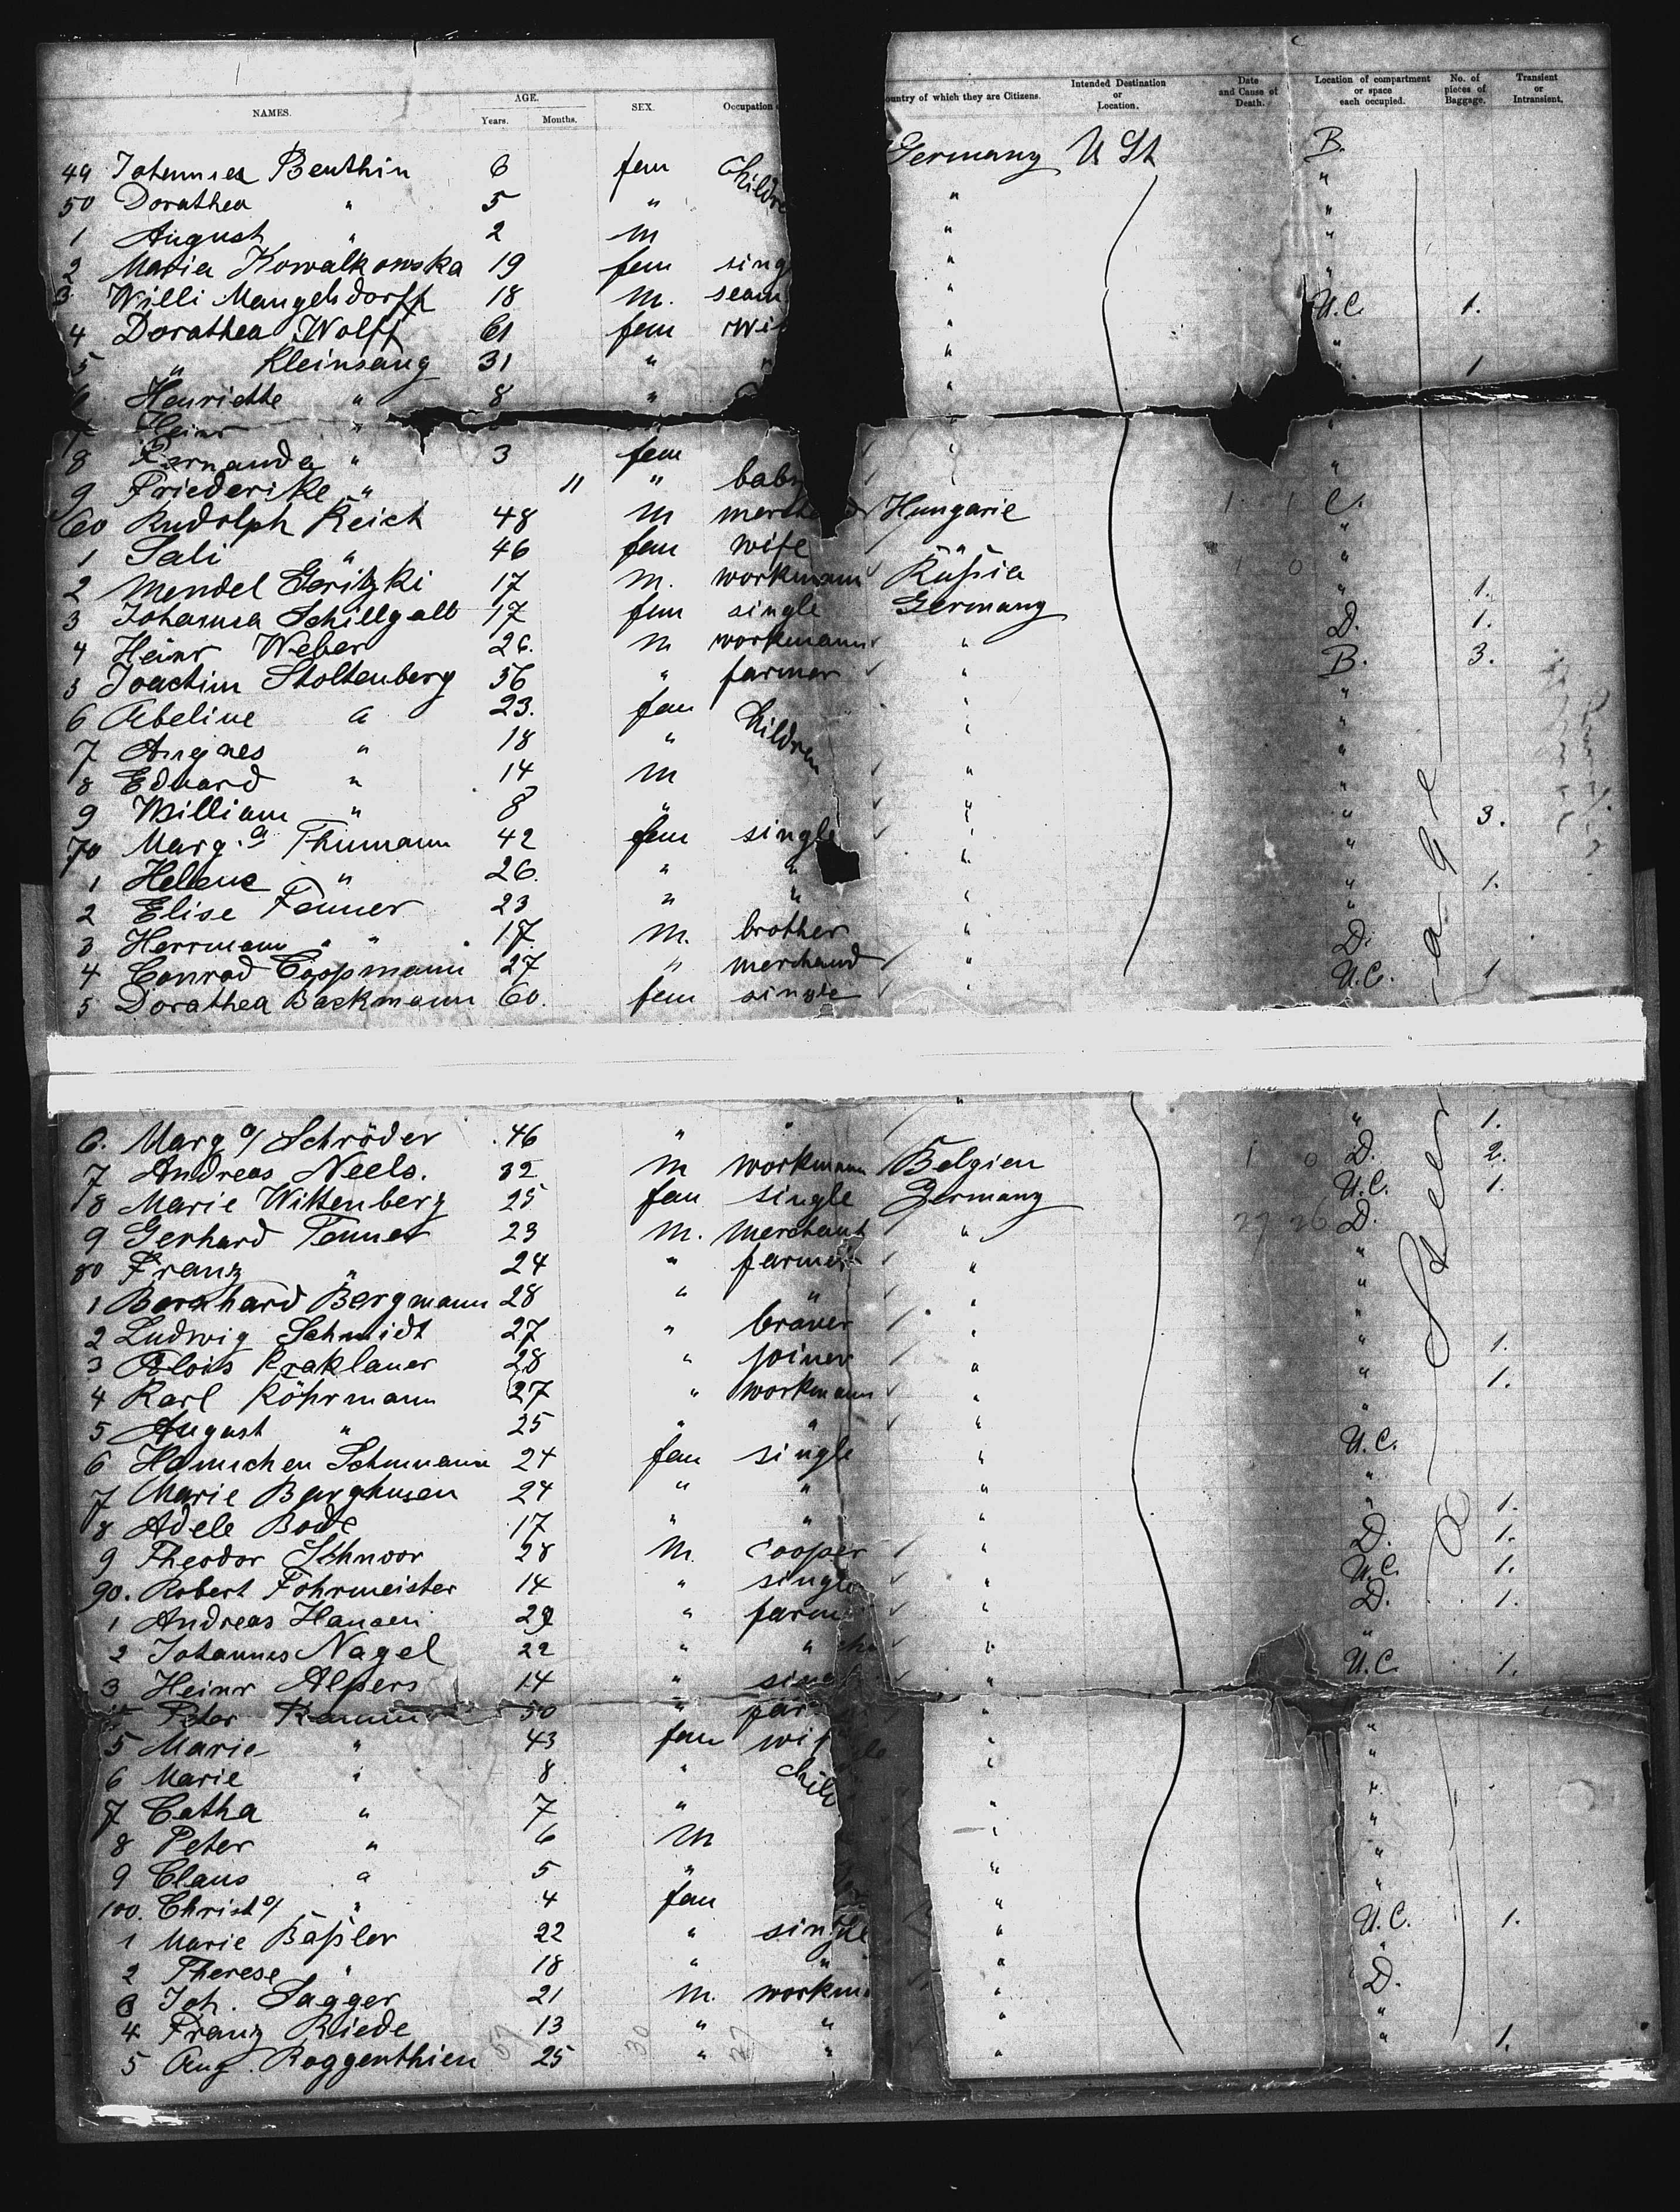 NAMES. AGE. Years. Months. SEX. Occupation ountry of which they are Citizens. Intended Destination or Location. Date and Cause of Death. Location of compartment or space each occupied. No. of pieces of Baggage. Transient or Intransient.
49 Benthin 6 fem Childre Germany U St B.
50 Dorathea " 5 " " "
1 August " 2 m " "
2 Maria Kowalkowska 19 fem sing " "
3 Willi Mangelsdorff 18 m. seam " "
4 Dorathea Wolff 61 fem wi " U.C. 1.
5 " Kleinsang 31 " " " "
6 Henriette " 8 " " " 1
Heinr "
8 Fernanda " 3 fem " "
9 Friederike " 11 " baby "
60 Rudolph Reich 48 m Hungarie C.
1 Sali " 46 fem wife "
2 Mendel 17 m. workmann Rußia "
3 Johanna Schillgall 17 fem single Germany " 1.
4 Heinr Weber 26. m workmann " D. 1.
5 Joachim Stoltenberg 56 " farmer " B. 3.
6 Abeline " 23. fem Children " "
7 Angnes " 18 " " "
8 Eduard " 14 m " "
9 William " 8 " " "
70 Marg.a Thumann 42 fem single " " 3.
1 Helene " 26. " " " "
2 Elise Fenner 23 " " " " 1.
3 Herrmann " 17. m. brother " "
4 Conrad Coopmann 27 " merchand " D.
5 Dorathea Backmann 60. fem single " U.C. 1
6. Marga/ Schröder 46 " " " " 1.
7 Andreas Neels. 32 m workmann Belgien D. 2.
8 Marie Wittenberg 25 fem single Germany U.C. 1.
9 Gerhard Fenner 23 m. merchant " D.
80 Franz " 24 " farmer " "
1 Bernhard Bergmann 28 " " " "
2 Ludwig Schmidt 27 " braver " "
3 Alois Kraklauer 28 " joiner " " 1.
4 Karl Köhrmann 27 " workmann " " 1.
5 August " 25 " " " "
6 Schumann 24 fem single " U.C.
7 Marie Barghusen 24 " " " "
8 Adele Bode 17 " " " " 1.
9 Theodor Schnoor 28 m. cooper " D. 1.
90. Robert Fohrmeister 14 " single " U.C. 1.
1 Andreas Hansen 29 " farm " D. 1.
2 Johannes Nagel 22 " " " "
3 Heinr Alpers 14 " sing " U.C. 1.
Peter 50 " far "
5 Marie " 43 fem wif " "
6 Marie " 8 " Child " "
7 Catha " 7 " " "
8 Peter " 6 m " "
9 Claus " 5 " " "
100. Christa/ " 4 fem " "
1 Marie Bäßler 22 " single " U.C. 1.
2 Therese " 18 " " " "
3 Joh. Sagger 21 m. workm " D.
4 Franz Riede 13 " " " "
5 Aug. Roggenthien 25 " " " " 1.
Steerage